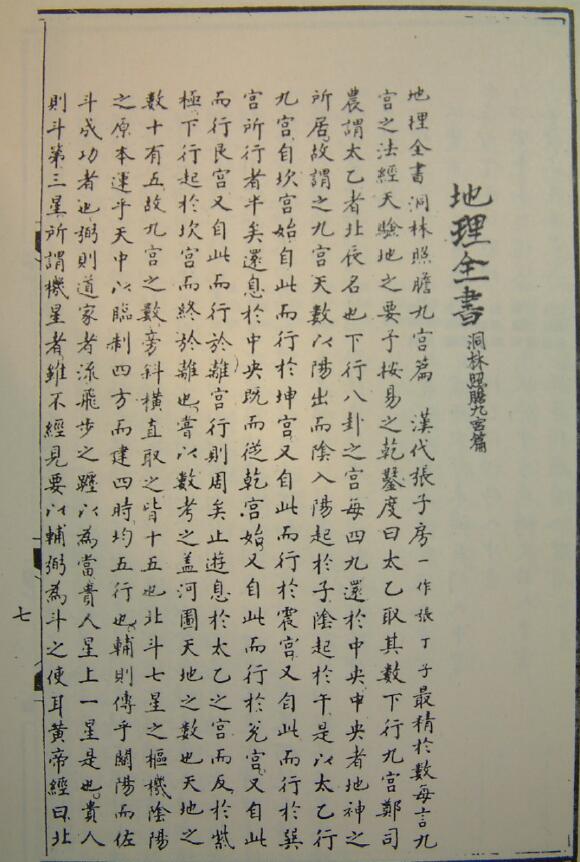 地理全書洞林照膽九宮篇
地理全書洞林照膽九宮篇　漢代張子房一作張丁子最精於數每言九
宮之法經天驗地之要予按易之乾鑿度曰太乙取其數下行九宮鄭司
農謂太乙者北辰名也下行八卦之宮每四九還於中央中央者地神之
所居故謂之九宮天數以陽出而陰入陽起於子陰起於午是以太乙行
九宮自坎宮始自此而行於坤宮又自此而行於震宮又自此而行於巽
宮所行者半矣還息於中央既而從乾宮始又自此而行於兌宮又自此
而行艮宮又自此而行於離宮行則周矣止遊息於太乙之宮而反於紫
極下行起於坎宮而終於離也嘗以數考之蓋河圖天地之數也天地之
數十有五故九宮之數旁斜橫直取之皆十五也北斗七星之樞機陰陽
之原本運乎天中以臨制四方而建四時均五行也輔則傳乎闓陽而佐
斗成功者也弼則道家者流飛步之躔以為當貴人星上一星是也貴人
則斗第三星所謂機星者雖不經見要以輔弼為斗之使耳黃帝經曰北
七